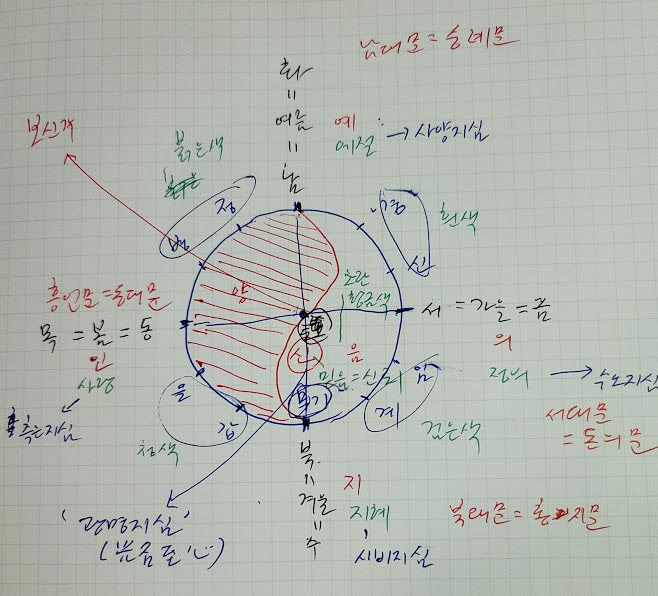 남대문 = 숭례문
화
=
여름
=
남
예
예절 → 사양지심
보신각
붉은색
병 정
경 신
흰색
흥인문 = 동대문
목 = 봄 = 동
인
사랑
측은지심
양
황금색
서 = 가을 = 금
의
정의 → 수오지심
서대문
= 돈의문
신
음
믿음 = 신뢰
무기
임
계
검은색
을
갑
청색
북
=
겨울
=
수
지
지혜
시비지심
북대문 = 홍지문
'광명지심'